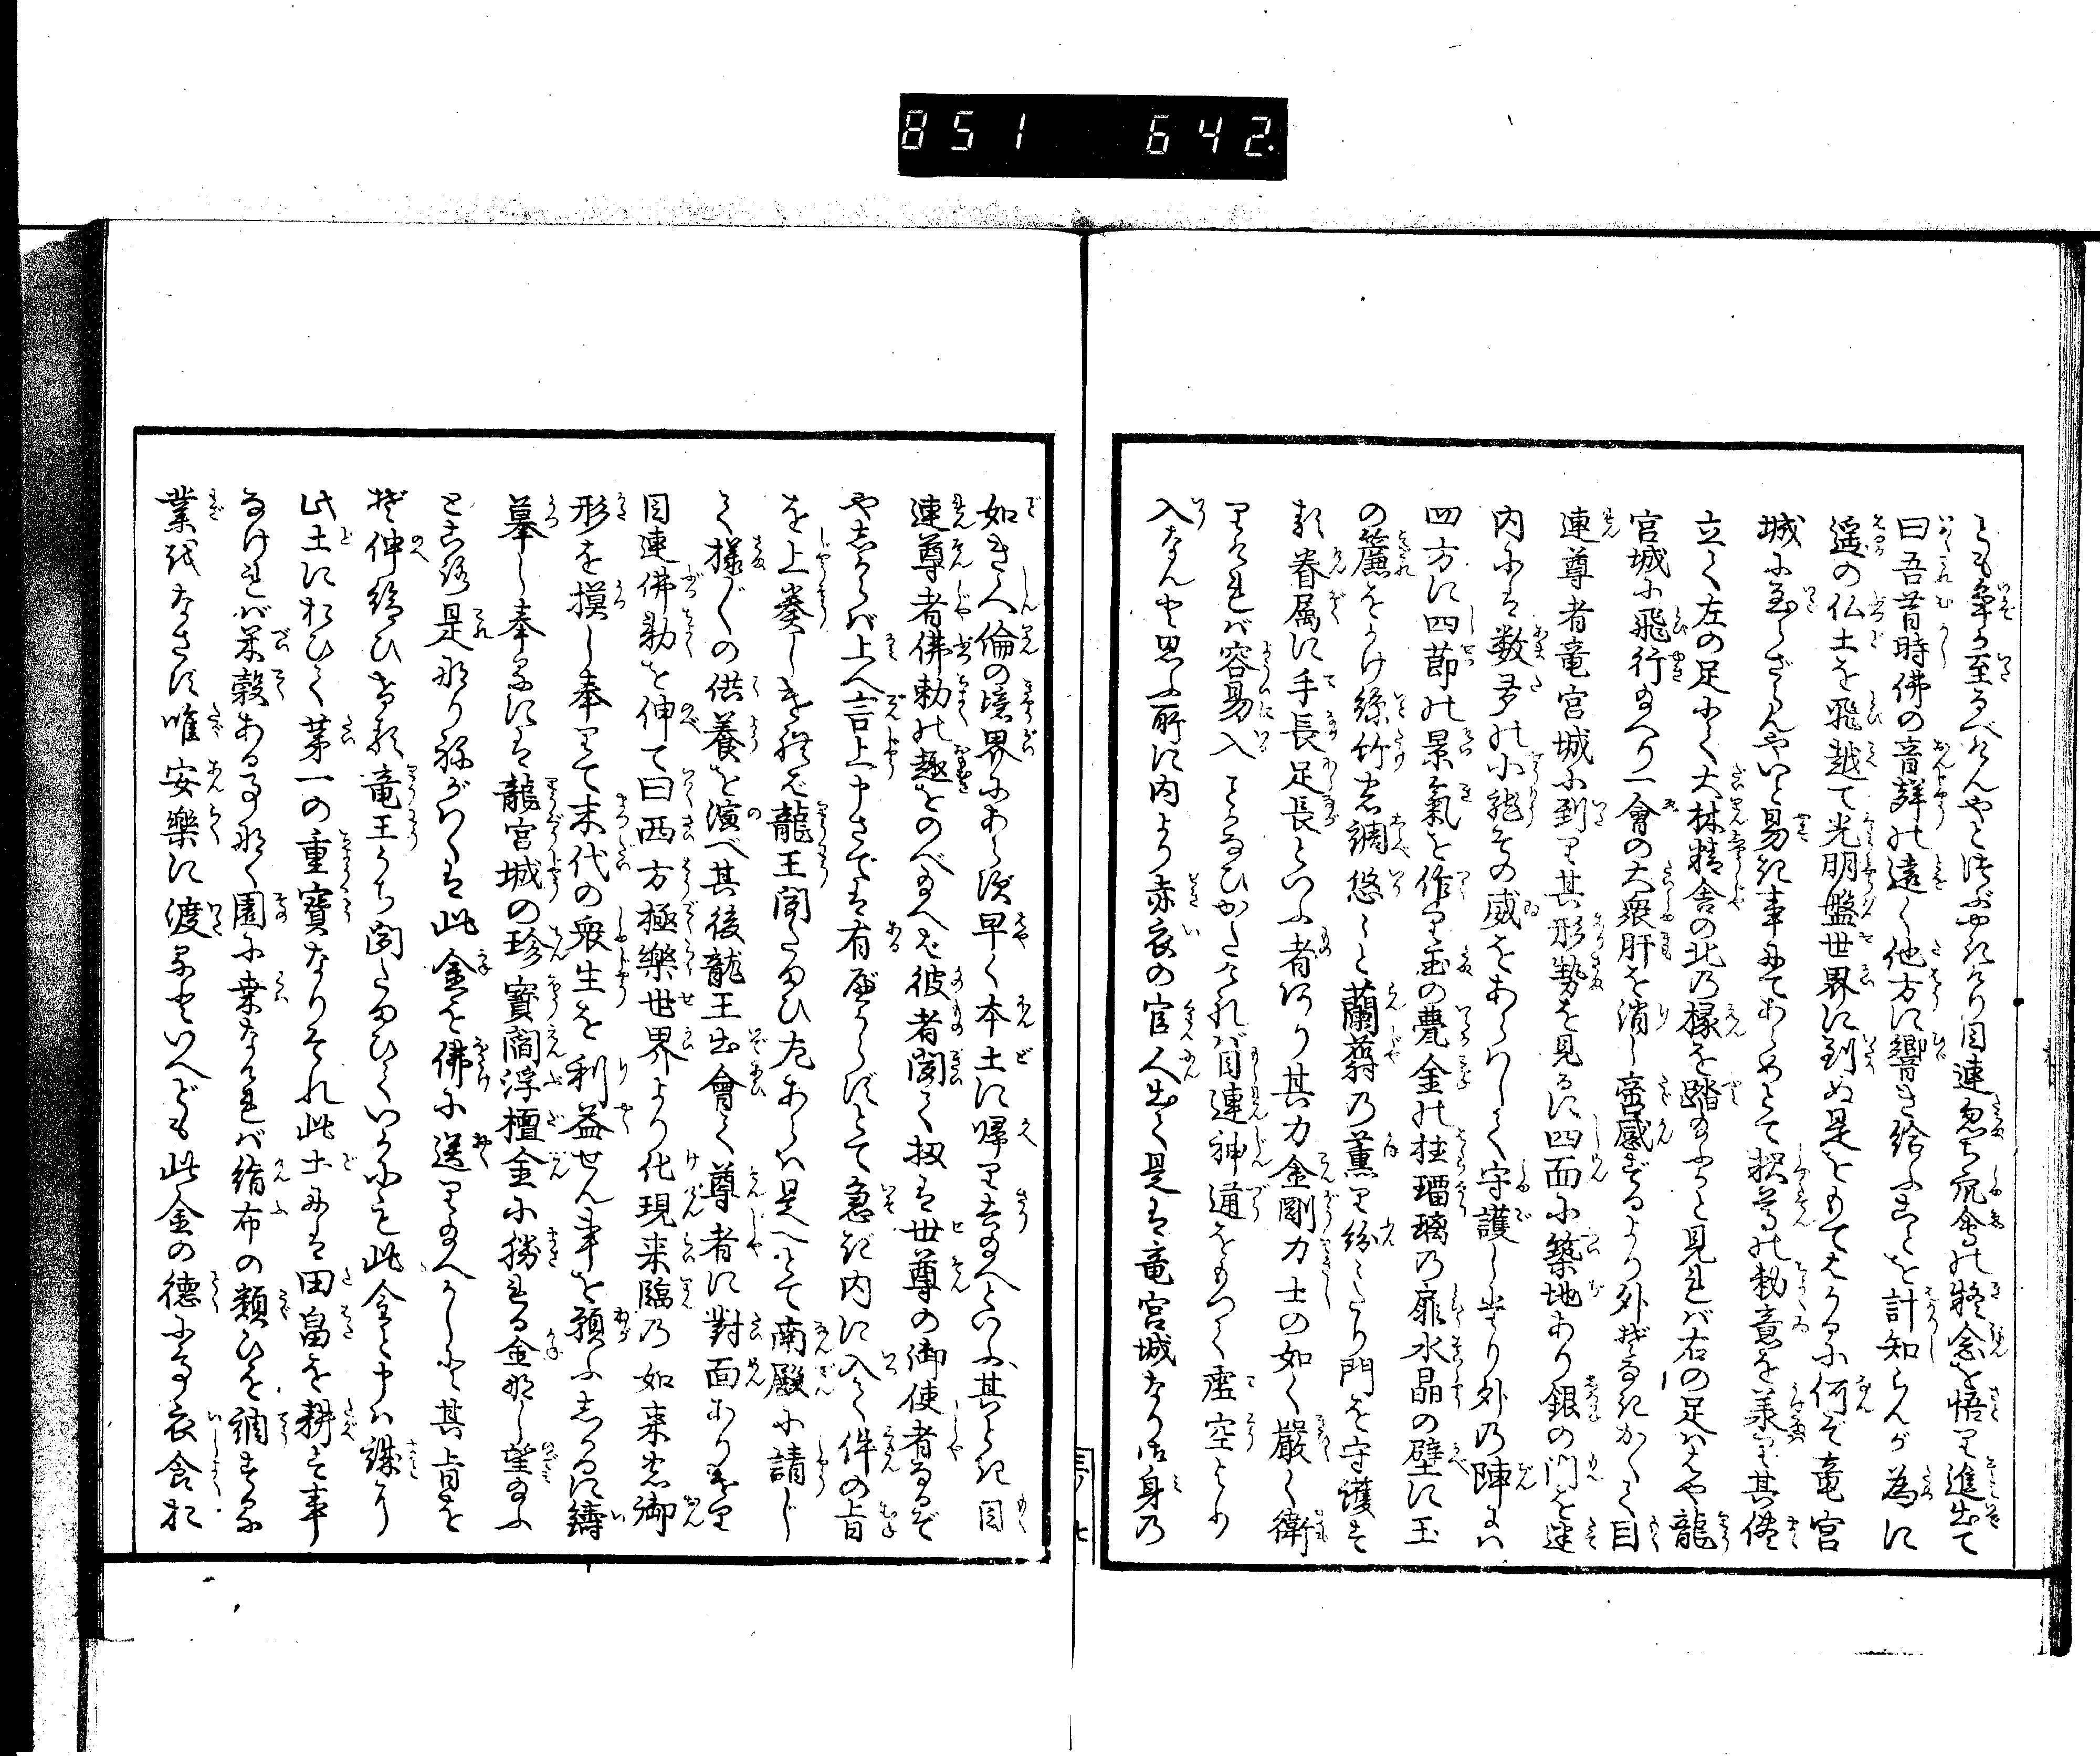 851 642
とも争う至るべけんやと演ぶ給けり目連忽ち尻舎の疑念を悟り進出て
曰吾昔時佛の音聲の遠く他方に響き給ふことを計知らんが為に
遥の仏土を飛越て光明盤世界に到ぬ是をもてはかるに何ぞ竜宮
城に至らざらんやいと易き事にてあらめとて釈尊の勅意を羕り其儘
立て左の足にて大林精舎の北乃椽を踏給ふかと見れば右の足ははや龍
宮城に飛行給へり一會の大衆肝を消し帝感ずるより外ぞなきかくて目
連尊者竜宮城に到り其形勢を見るに四面に築地あり銀の門を建
内には数多の小龍その威をあらはして守護し坐り外乃陣には
四方に四節の景氣を作り玉の甍金の柱瑠璃乃扉水晶の壁に玉
の簾をかけ絲竹の調悠々と蘭蕣乃薫り紛々たり門を守護する
眷属に手長足長といふ者あり其力金剛力士の如く嚴く衛
りければ容易入ことなひがたければ目連神通をもつて虚空より
入なんと思ふ所に内より赤衣の官人出て是は竜宮城なり活身乃
三ノ七
如き人倫の境界にあらず早く本土に帰り去給へといふ其とき目
連尊者佛勅の趣をのべ給へば彼者聞て扨は世尊の御使者なるぞ
やしからば上へ言上申さでは有べからずとて急ぎ内に入て件の旨
を上奏しければ龍王聞たまひ左あらば是へとて南殿に請じ
て様々の供養を演べ其後龍王出會て尊者に對面ありけり
目連佛勅を伸て曰西方極樂世界より化現来臨乃如来の御
形を摸し奉りて末代の衆生を利益せん事を預ふしかるに鑄
摹し奉るには龍宮城の珍寳閻浮檀金に勝れる金那し望給ふ
ところ是那り希がはくは此金を佛に送り給へかしと其旨を
ぞ伸給ひける竜王うち聞たまひていかにも此金と申は誠に
此土において第一の重寳なりそれ此土には田畠を耕す事
なければ米穀ある事那く園に桒なければ絹布の類ひを調する
業はなさず唯安樂に渡るといへども此金の徳にて衣食お